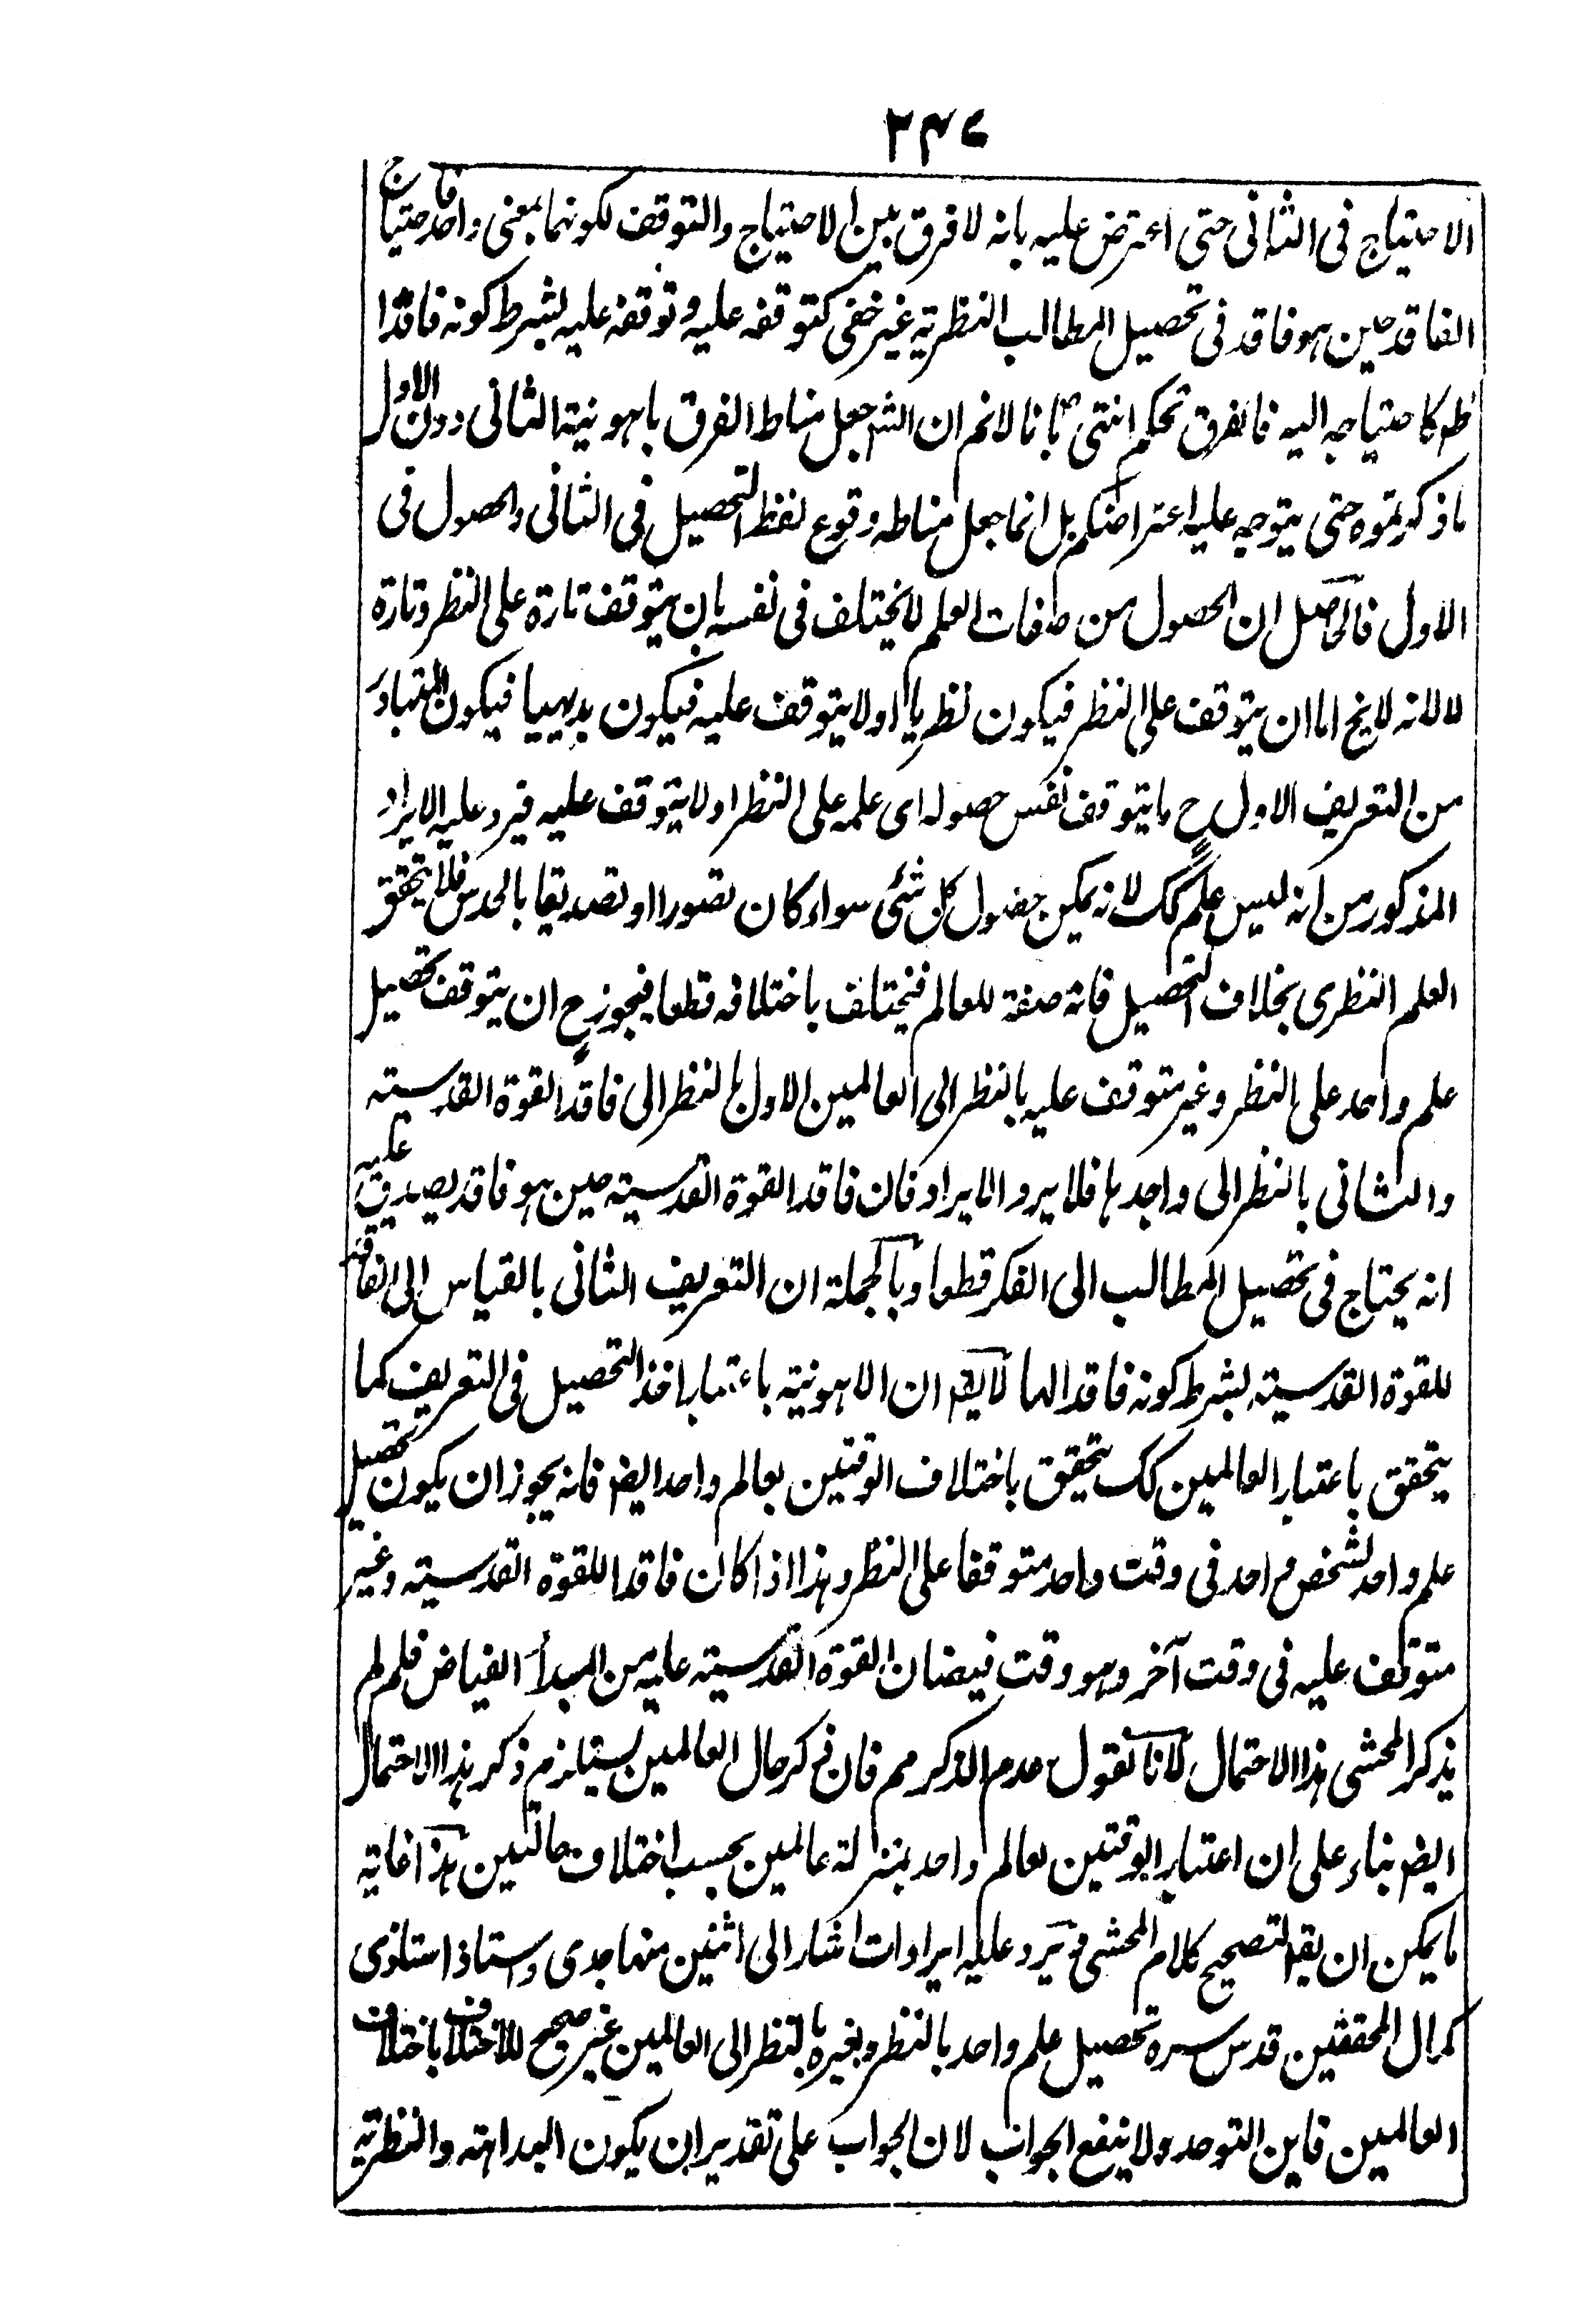 ٢٤٦
الاحتياج فى الثانى حتى اعترض عليه بانه لا فرق بين الاحتياج والتوقف لكونهما بمعنى واحد فاحتياج
الفاقد حين هو فاقد فى تحصيل المطالب النظرية غير خفى كتوقفه عليه وتوقفه عليه بشرط كونه فاقدا
ظم كاحتياجه اليه فالفرق تحكم انتهى بانا لانم ان الشر جعل مناط الفرق باهونية الثانى دون الاول
ما ذكرتموه حتى يتوجه عليه اعتراضكم بل انما جعل مناطه وقوع لفظ التحصيل فى الثانى والحصول فى
الاول فالحاصل ان الحصول من صفات العلم لا يختلف فى نفسه بان يتوقف تارة على النظر وتارة
لا لانه لا يخ اما ان يتوقف على النظر فيكون نظريا او لا يتوقف عليه فيكون بديهيا فيكون المتبادر
من التعريف الاول ح ما يتوقف نفس حصوله اى علمه على النظر او لا يتوقف عليه فيرد عليه الايراد
المذكور من انه ليس علم كك لانه يمكن حصول كل شئ سواء كان تصورا او تصديقا بالحدس فلا يتحقق
العلم النظرى بخلاف التحصيل فانه صفة للعالم فيختلف باختلافه قطعا فيجوز ح ان يتوقف تحصيل
علم واحد على النظر وغير متوقف عليه بالنظر الى العالمين الاول بالنظر الى فاقد القوة القدسية
والثانى بالنظر الى واجدها فلا يرد الايراد فان فاقد القوة القدسية حين هو فاقد يصدق عليه
انه يحتاج فى تحصيل المطالب الى الفكر قطعا وبالجملة ان التعريف الثانى بالقياس الى الفاقد
للقوة القدسية بشرط كونه فاقدا لها لا يقم ان الاهونية باعتبار اخذ التحصيل فى التعريف كما
يتحقق باعتبار العالمين كك يتحقق باختلاف الوقتين بعالم واحد ايضم فانه يجوز ان يكون تحصيل
علم واحد لشخص واحد فى وقت واحد متوقفا على النظر وهذا اذا كان فاقدا للقوة القدسية وغير
متوقف عليه فى وقت آخر وهو وقت فيضان القوة القدسية عليه من المبدأ الفياض فلم لم
يذكر المحشى هذا الاحتمال لانا نقول عدم الذكر مم فان ذكر حال العالمين يستلزم ذكر هذا الاحتمال
ايضم بناء على ان اعتبار الوقتين لعالم واحد بمنزلة عالمين بحسب اختلاف حالتين هذا غاية
ما يمكن ان يقم لتصحيح كلام المحشى ويرد عليه ايرادات اشار الى اثنين منها جدى واستاذ استاذى
كمال المحققين قدس سره تحصيل علم واحد بالنظر وبغيره بالنظر الى العالمين غير صحيح للاختلاف باختلاف
العالمين فاين التوحد ولا ينفع الجواب لان الجواب على تقدير ان يكون البداهة والنظرية